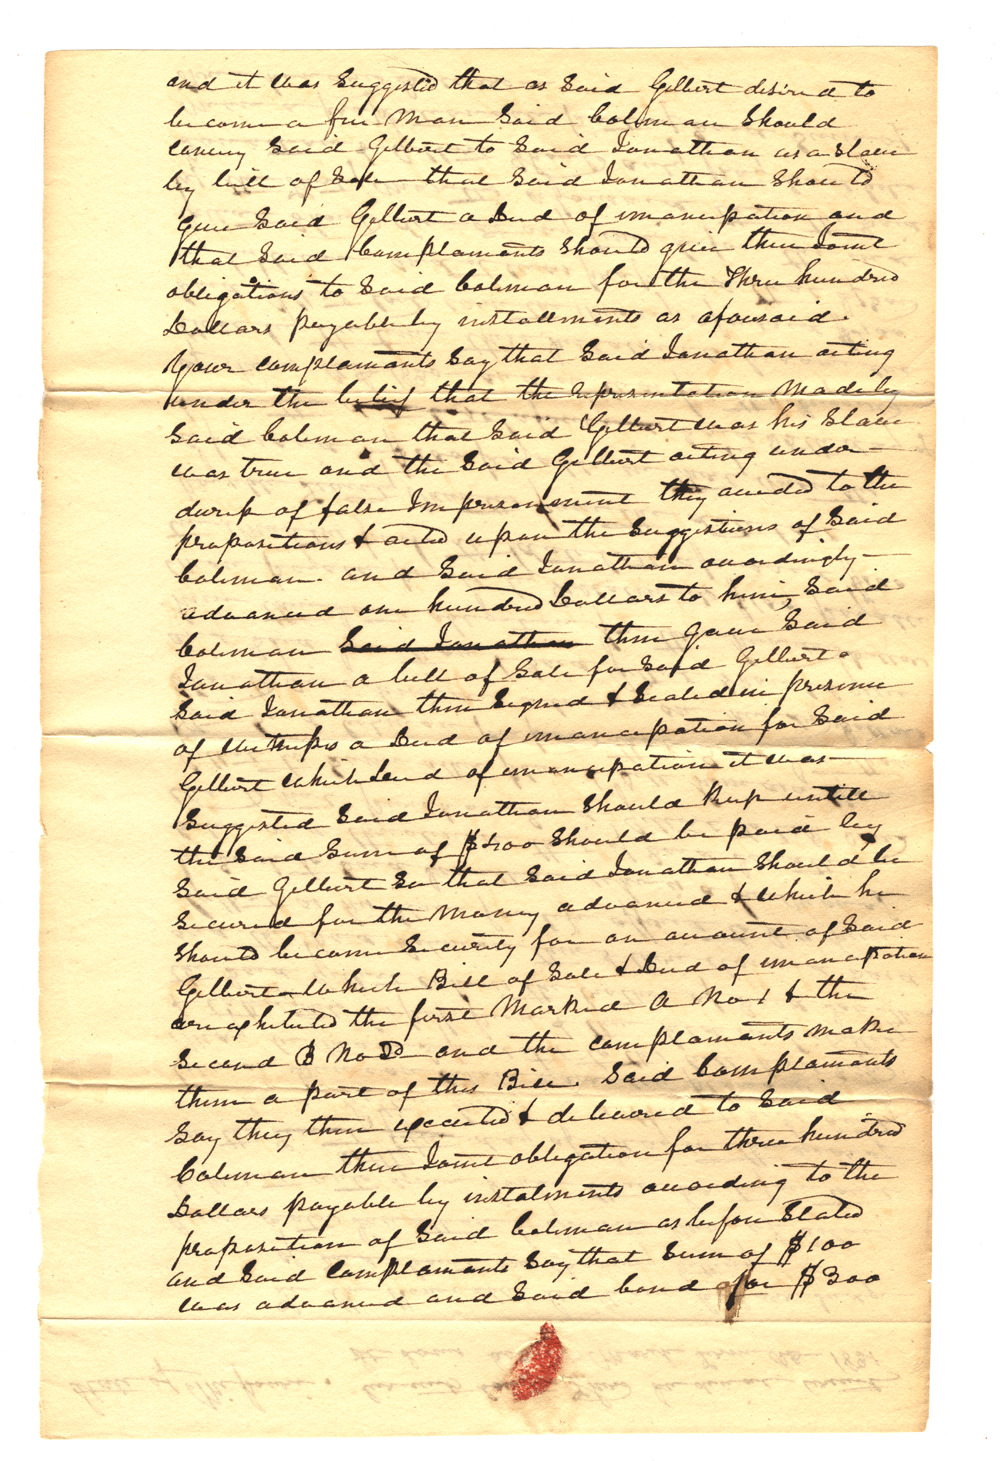 and it was Suggested that as Said Gilbert desired to
become a free Man Said Coleman Should
convey Said Gilbert to Said Jonathan as a Slave
by bill of Sale that Said Jonathan Should
give Said Gilbert a Deed of emancipation and
that Said Complainants Should give their Joint
obligations to Said Coleman for the Three hundred
Dollars payable by installments as aforesaid.
Your complainants Say that Said Jonathan acting
under the belief that the representation Made by
Said Coleman that Said Gilbert was his Slave
was true and the Said Gilbert acting under
duress of false Imprisonment they acceded to the
propositions & acted upon the Suggestions of Said
Coleman. and Said Jonathan accordingly
advanced one hundred Dollars to him, Said
Coleman Said Jonathan then gave Said
Jonathan a bill of Sale for Said Gilbert.
Said Jonathan then Signed & Sealed in presence
of Witness a Deed of emancipation for Said
Gilbert which Deed of emancipation it was
Suggested Said Jonathan Should Keep untill
the Said Sum of $400 Should be paid by
Said Gilbert So that Said Jonathan Should be
Secured for the Money advanced & which he
Should become Security for on account of Said
Gilbert which Bill of Sale & Deed of emancipation
are exhibited the first Marked A No 1 & the
Second B No and the complainants make
them a part of this Bill. Said Complainants
Say they then executed & delivered to Said
Coleman their Joint obligation for three hundred
Dollars payable by instalments according to the
proposition of Said Coleman as before Stated
and Said Complainants Say that Sum of $100
was advanced and Said bond for $300